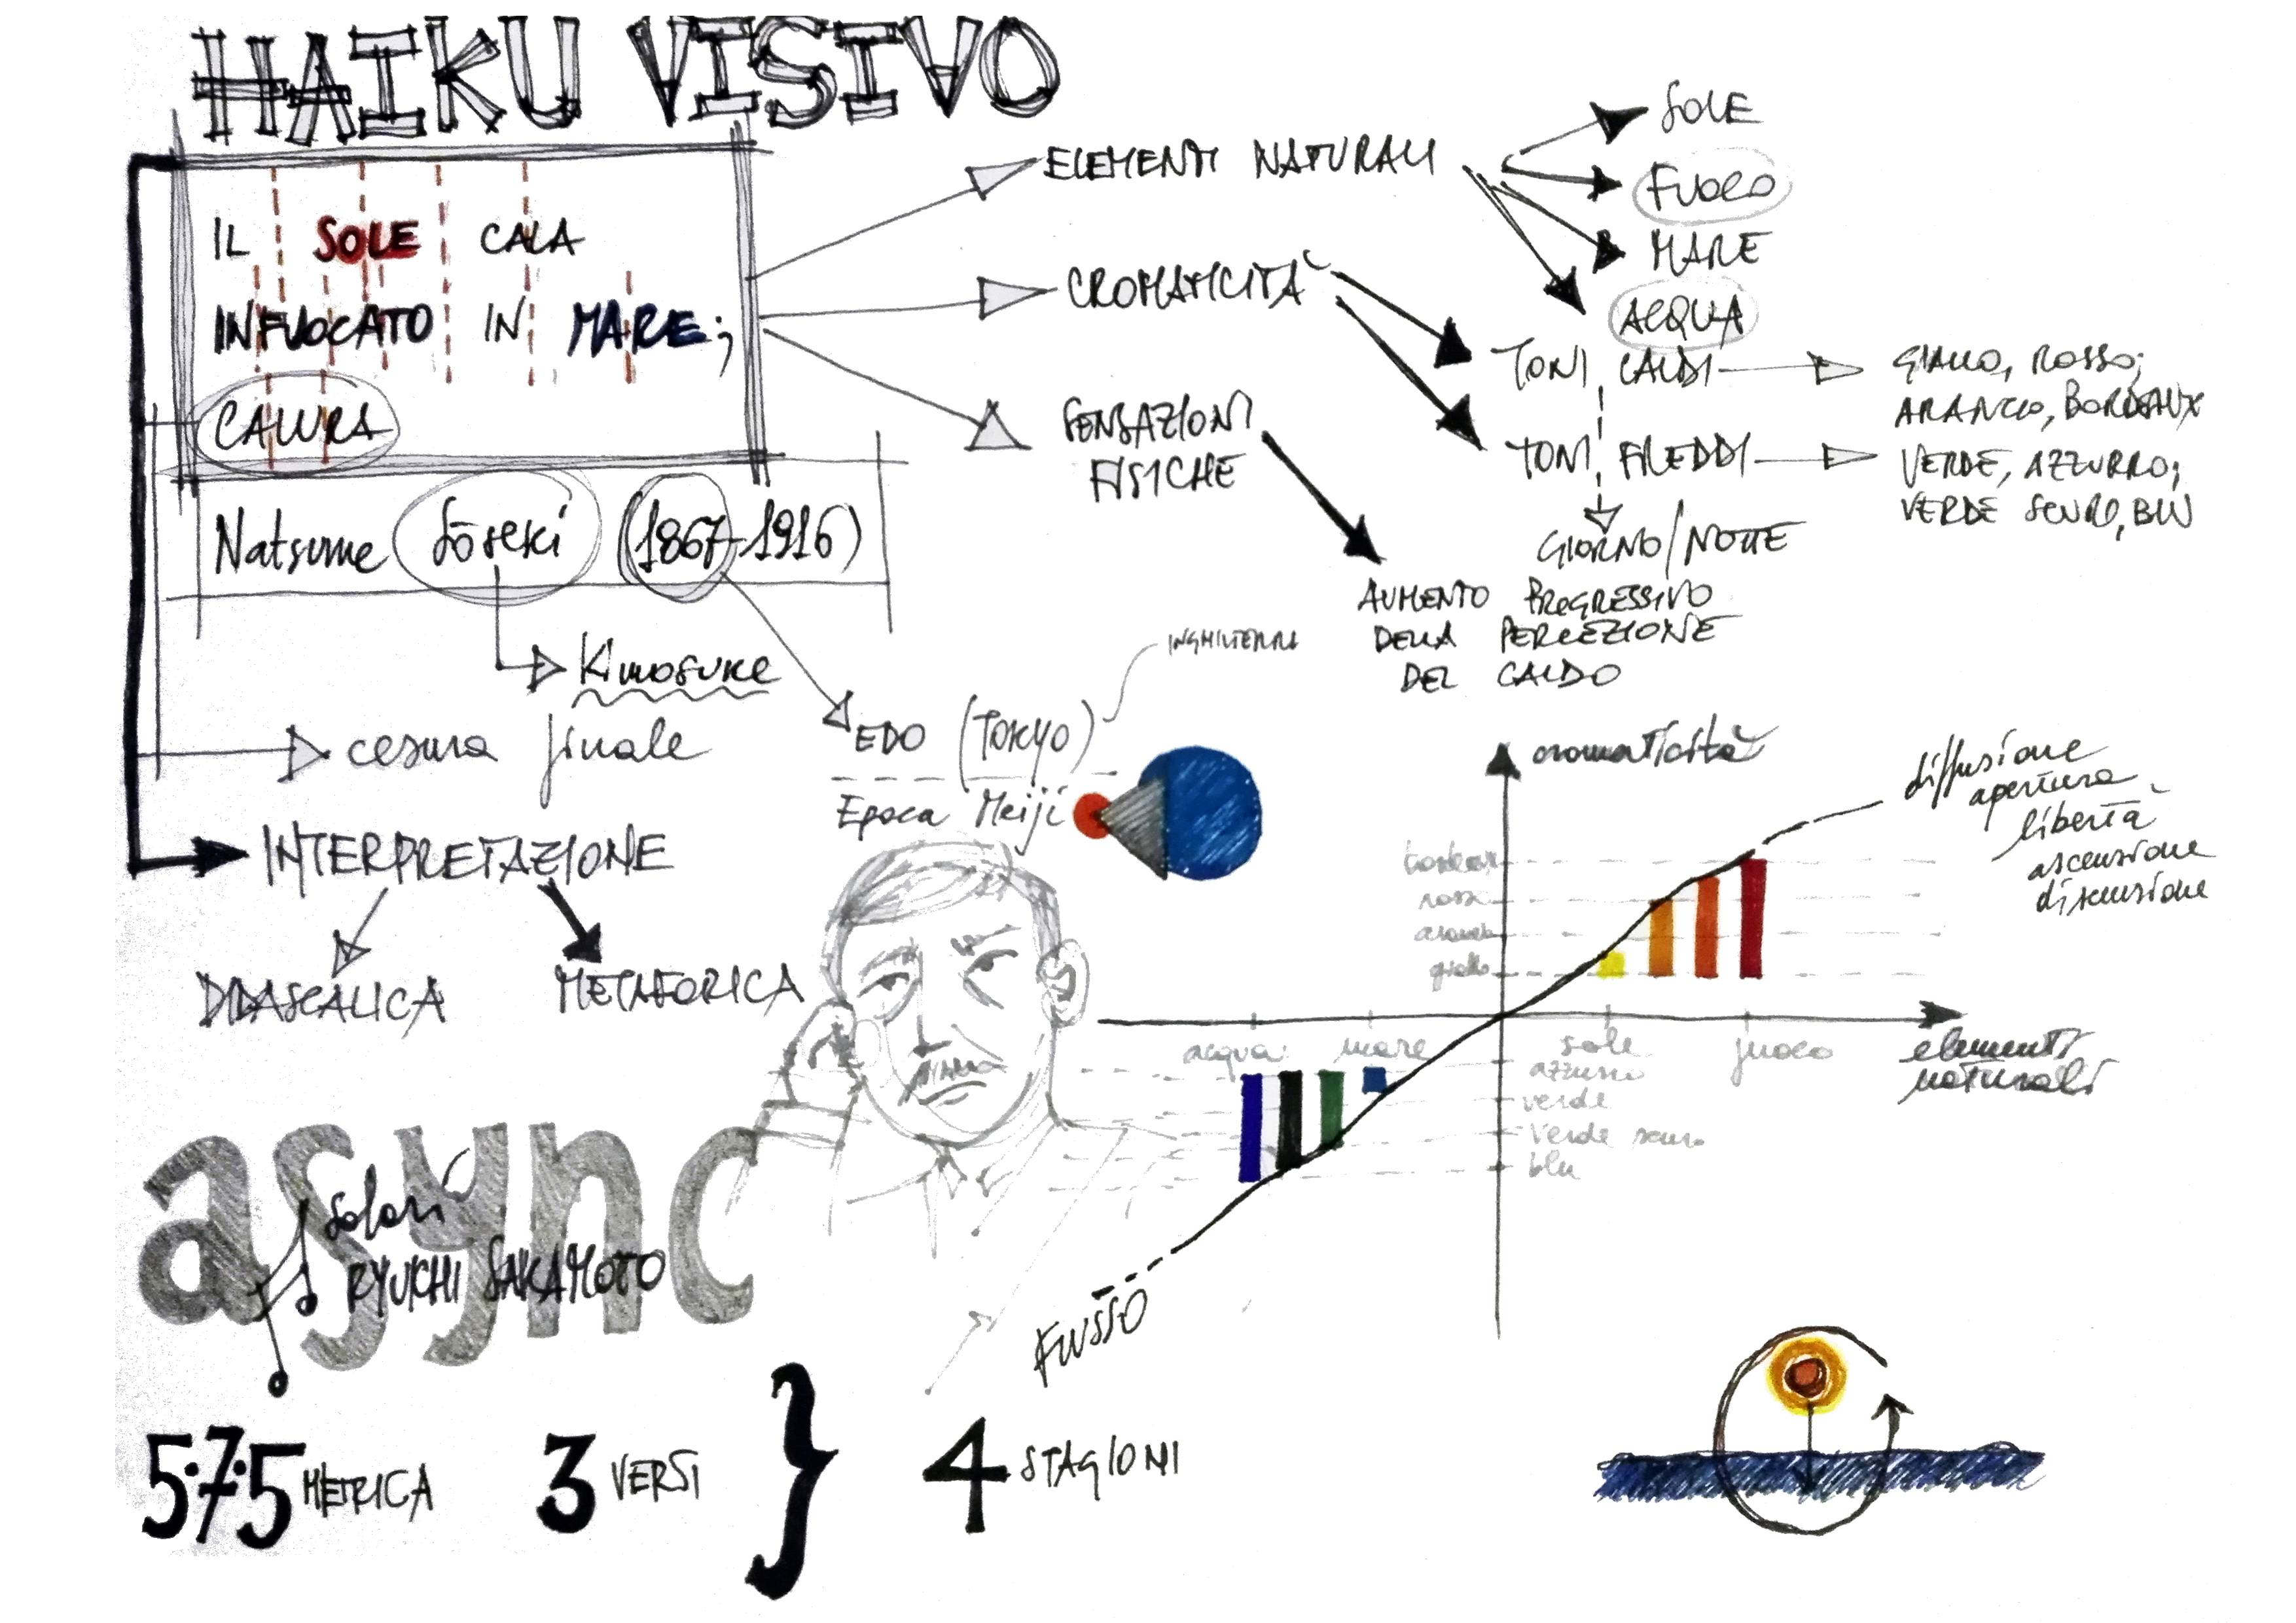 HAIKU VISIVO
IL SOLE CALA
INFUOCATO IN MARE;
CALURA
Natsume Sōseki (1867-1916)
Kinosuke
cesura finale
INTERPRETAZIONE
DIDASCALICA
METAFORICA
ELEMENTI NATURALI
SOLE
FUOCO
MARE
ACQUA
CROMATICITÀ
TONI CALDI
GIALLO, ROSSO;
ARANCIO, BORDEAUX
TONI FREDDI
VERDE, AZZURRO;
VERDE SCURO, BLU
GIORNO/NOTTE
SENSAZIONI
FISICHE
AUMENTO PROGRESSIVO
DELLA PERCEZIONE
DEL CALDO
INGHILTERRA
EDO (TOKYO)
Epoca Meiji
cromaticità
diffusione
apertura
libertà
ascensione
discensione
bordeaux
rosso
arancio
giallo
acqua
mare
sole
fuoco
elementi
naturali
azzurro
verde
verde scuro
blu
FLUSSO
async
solari
RYUICHI SAKAMOTO
5·7·5 METRICA
3 VERSI
}
4 STAGIONI